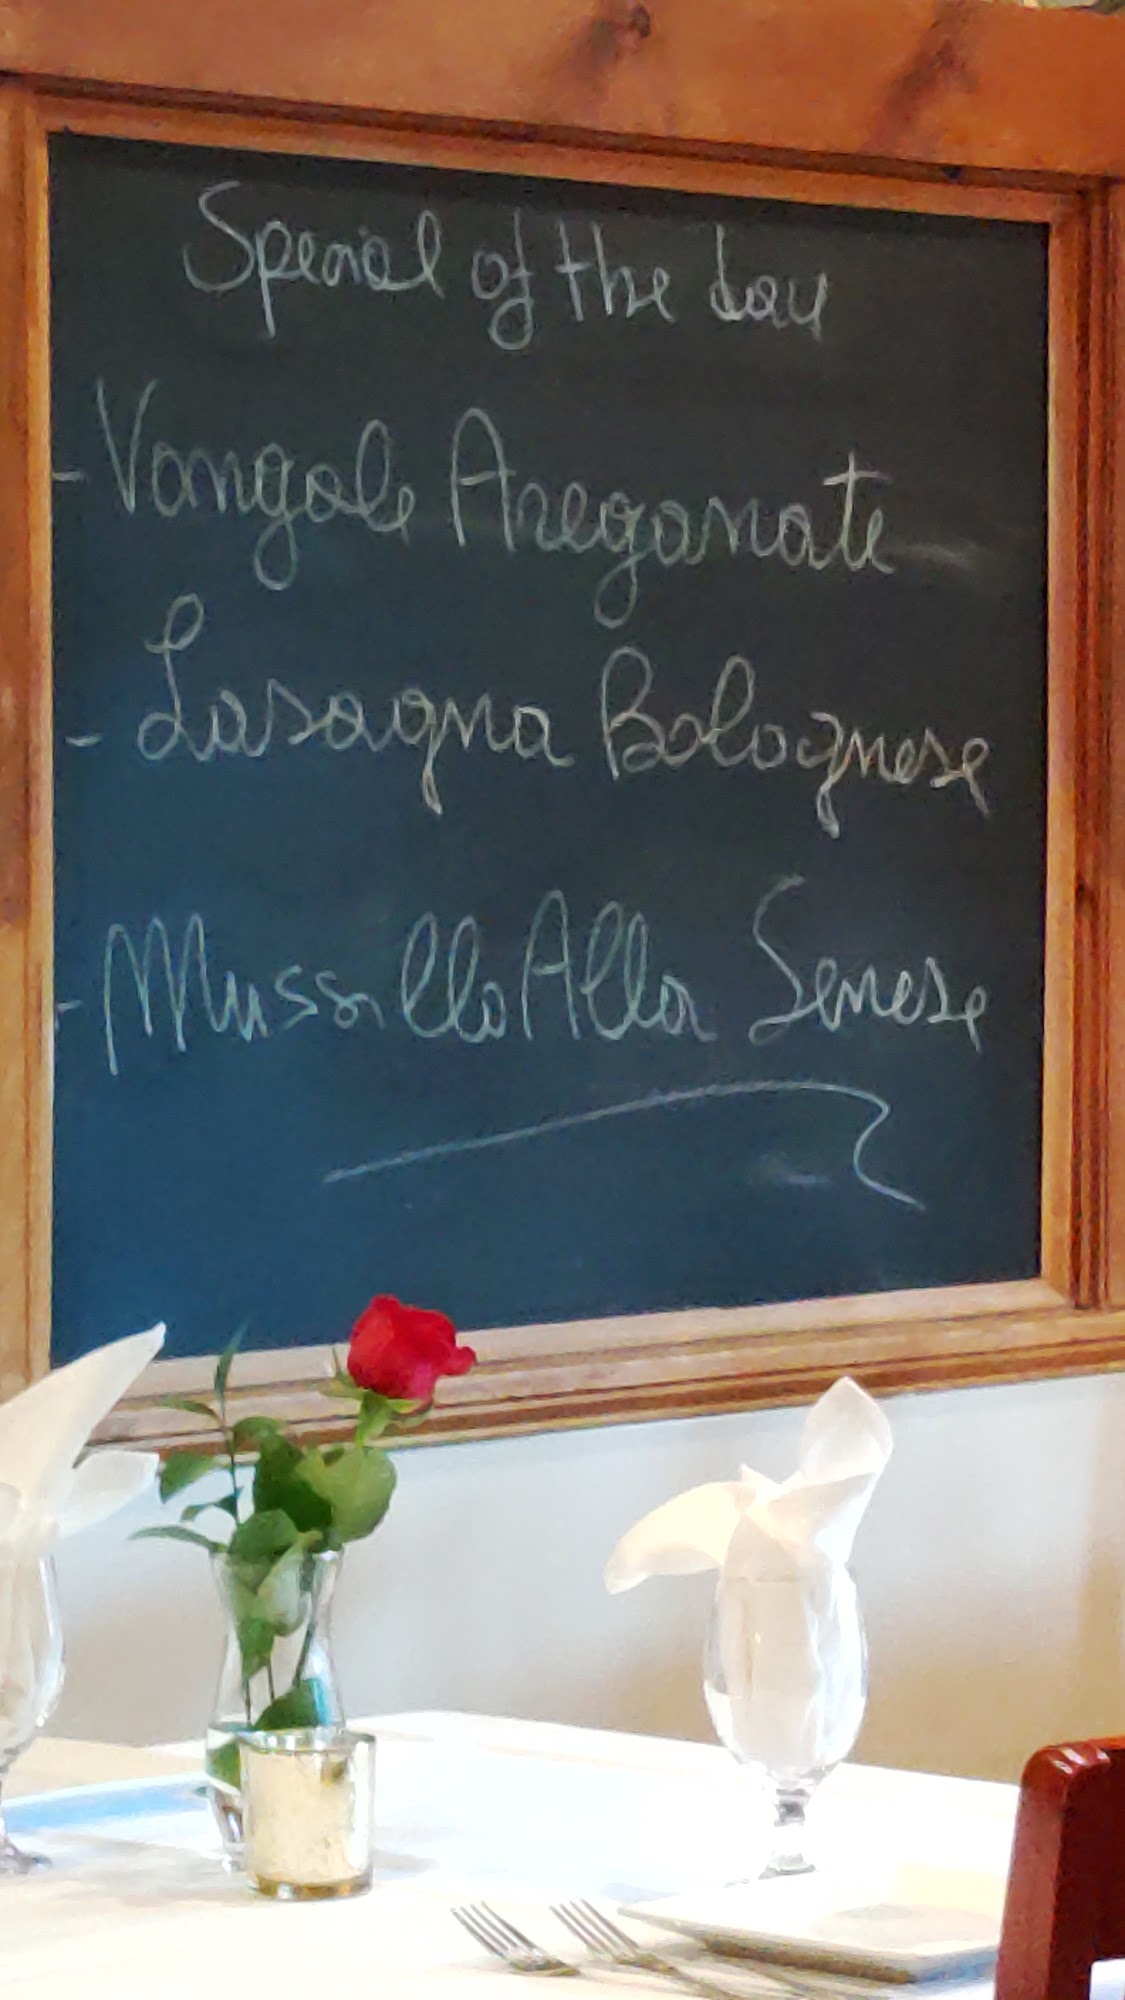 Special of the day
- Vongole Areganate
- Lasagna Bolognese
- Mussillo Alla Senese